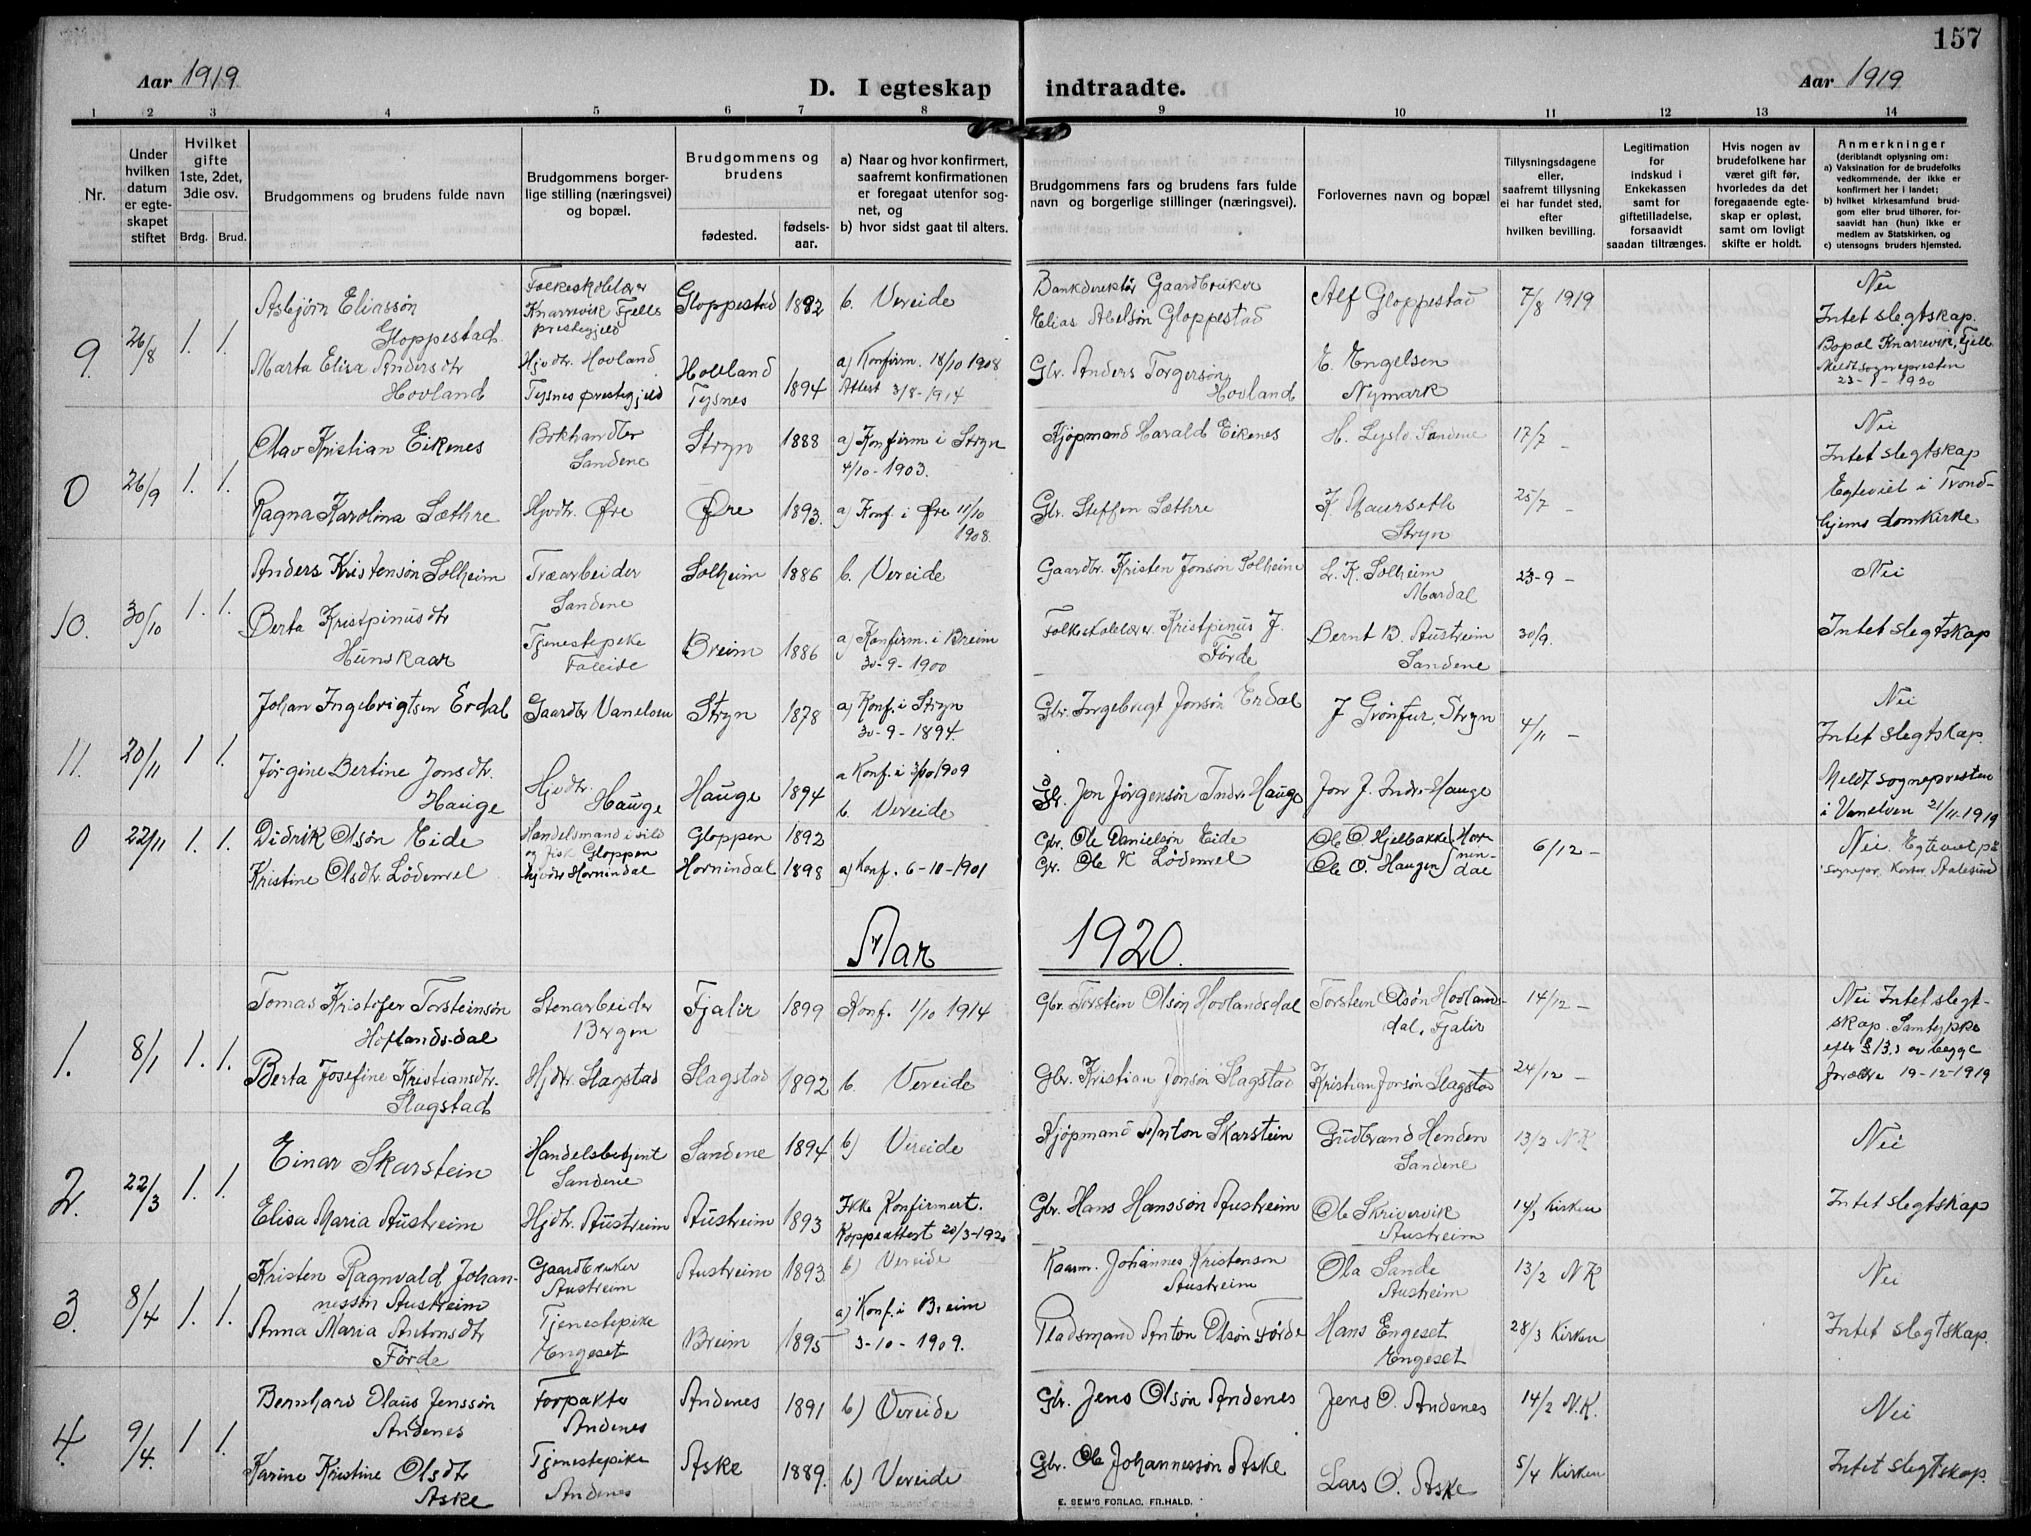 157
Aar 1919
D. I egteskap indtraadte.
Aar 1919
1 2 3 4 5 6 7 8 9 10 11 12 13 14
Nr.
Under
hvilken
datum
er egte-
skapet
stiftet
Hvilket
gifte
1ste, 2det,
3die osv.
Brdg. Brud.
Brudgommens og brudens fulde navn
Brudgommens borger-
lige stilling (næringsvei)
og bopæl.
Brudgommens og
brudens
fødested.
fødsels-
aar.
a) Naar og hvor konfirmert,
saafremt konfirmationen
er foregaat utenfor sog-
net, og
b) hvor sidst gaat til alters.
Brudgommens fars og brudens fars fulde
navn og borgerlige stillinger (næringsvei).
Forlovernes navn og bopæl
Tillysningsdagene
eller,
saafremt tillysning
ei har fundet sted,
efter
hvilken bevilling.
Legitimation
for
indskud i
Enkekassen
samt for
giftetilladelse,
forsaavidt
saadan tiltrænges.
Hvis nogen av
brudefolkene har
været gift før,
hvorledes da det
foregaaende egte-
skap er opløst,
samt om lovligt
skifte er holdt.
Anmerkninger
(deriblandt oplysning om:
a) Vaksination for de brudefolks
vedkommende, der ikke er
konfirmert her i landet;
b) hvilket kirkesamfund brud-
gom eller brud tilhører, for-
saavidt han (hun) ikke er
medlem av Statskirken, og
c) utensogns bruders hjemsted.
9. 26/8 1. 1.
Asbjørn Eliassøn
Gloppestad
Folkeskolelærer
Knarrevik Fjells
prestegjeld
Gloppestad 1892 b. Vereide
Bankdirektør Gaardbruker
Elias Abelsøn Gloppestad
Alf Gloppestad
7/8 1919
Nei
Intet slegtskap.
Bopæl Knarrevik, Fjell
Meldt sognepresten
1920
Marta Elisa Andersdtr
Hovland
Hjvdtr. Hovland
Tysnes prestegjeld
Hovland
Tysnes
1894
a) Konfirm. 18/10 1908
Attest 3/8-1914
Gbr. Anders Torgersøn
Hovland
E. Engelsen
Nymark
0 26/9 1. 1.
Olav Kristian Eikenes
Bokhandler
Sandene
Stryn 1888
a) Konfirm i Stryn
4/10-1903.
Kjøpmand Harald Eikenes
H. Lyslo Sandene
17/7 –
Nei
Intet slegtskap
Egteviet i Trond-
hjems domkirke
Ragna Karolina Sæthre
Hjvdtr. Øre
Øre 1893.
a) Konf. i Øre 11/10
1908.
Gbr. Steffen Sæthre
K. Maurseth
Stryn
25/7 –
10. 30/10 1. 1.
Anders Kristensøn Solheim
Træarbeider
Sandene
Solheim 1886 b. Vereide
Gaardbr. Kristen Jonsøn Solheim
L. K. Solheim
Mardal
23-9 –
Nei
Berta Kristpinusdtr
Hunskaar
Tjenestepike
Faleide
Breim 1886
a) Konfirm. i Breim
30-9-1900
Folkeskolelærer. Kristpinus J.
Førde
Bernt B. Austreim
Sandene
30/9.
Intet slegtskap
11. 20/11 1 1.
Johan Ingebrigtsen Erdal
Gaardbr Vanelven
Stryn 1878
a) Konf. i Stryn
30-9-1894.
Gbr. Ingebrigt Jonsøn Erdal
J Grønfur, Stryn
4/11 –
Nei
Intet slegtskap.
Meldt sognepresten
i Vanelven 21/11-1919
Jørgine Bertine Jonsdtr.
Hauge
Hjvdtr.
Hauge
Hauge 1894
a Konf. i 3/10 1909
b. Vereide
Gbr. Jon Jørgensøn Indr. Hauge
Jon J. Indr. Hauge
0 22/11 1. 1.
Didrik Olsøn Eide
Handelsmand i sild
og fisk Gloppen
Gloppen 1892
Gbr. Ole Danielsøn Eide
Ole O. Hjelbakke Hor-
nin-
dal
6/12 –
Nei. Egteviet på
sognepr. kontor Aalesund
Kristine Olsdtr. Lødemel
Hjvdtr Hornindal
Hornindal 1898
a) Konf. 6-10-1901
Gr. Ole K Lødemel
Ole O. Haugen
Aar 1920.
1. 8/1 1. 1.
Tomas Kristofer Torsteinsøn
Hovlandsdal
Stenarbeider
Bergen
Fjalir 1899 Konf. 1/10 1914
Gbr. Torstein Olsøn Hovlandsdal
Torstein Olsøn Hovlands-
dal, Fjalir
14/12 –
Nei Intet slegt-
skap. Samtykke
efter § 13,3 av begge
forældre 19-12-1919
Berta Josefine Kristiansdtr.
Slagstad
Hjdtr. Slagstad
Slagstad 1892 b. Vereide
Gbr. Kristian Jonsøn Slagstad
Kristian Jonsøn Slagstad
24/12 –
2. 22/3 1. 1.
Einar Skarstein
Handelsbetjent
Sandene
Sandene 1894 b) Vereide
Kjøpmand Anton Skarstein
Gudbrand Henden
Sandene
13/3 N K
Nei
Elisa Maria Austreim
Hjdtr. Austreim
Austreim 1893
Ikke Konfirmert.
Koppeattest 20/3-1920
Gbr. Hans Hanssøn Austreim
Ole Skrivervik
Austreim
14/3 Kirken
Intet slegtskap
3. 8/4 1. 1.
Kristen Ragnvald Johan-
nessøn Austreim
Gaardbruker
Austreim
Austreim 1893 b) Vereide
Kaarm. Johannes Kristenson
Austreim
Ola Sande
Austreim
13/2 N K
Nei
Anna Maria Antonsdtr
Førde
Tjenestepike
Engeset
Breim 1895
a) Konf. i Breim
3-10-1909.
Pladsmand Anton Olsøn Førde
Hans Engeset
Engeset
28/3 Kirken
Intet slegtskap.
4. 9/4. 1 1.
Bernhard Olaus Jenssøn
Andenes
Forpakter
Andenes
Andenes 1891 b) Vereide
Gbr. Jens Olsøn Andenes
Jens O. Andenes
14/2 N.K.
Nei
Karine Kristine Olsdtr
Aske
Tjenestepike
Andenes
Aske 1889. b) Vereide
Gbr. Ole Johannessøn Aske
Lars O. Aske
5/4 Kirken
Intet slegtskap.
E. SEM'S FORLAG, FR.HALD.